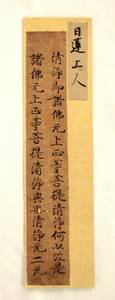 日蓮上人
清淨即諸佛无上正等菩提清淨何以故是
諸佛无上正等菩提清淨與清淨无二无